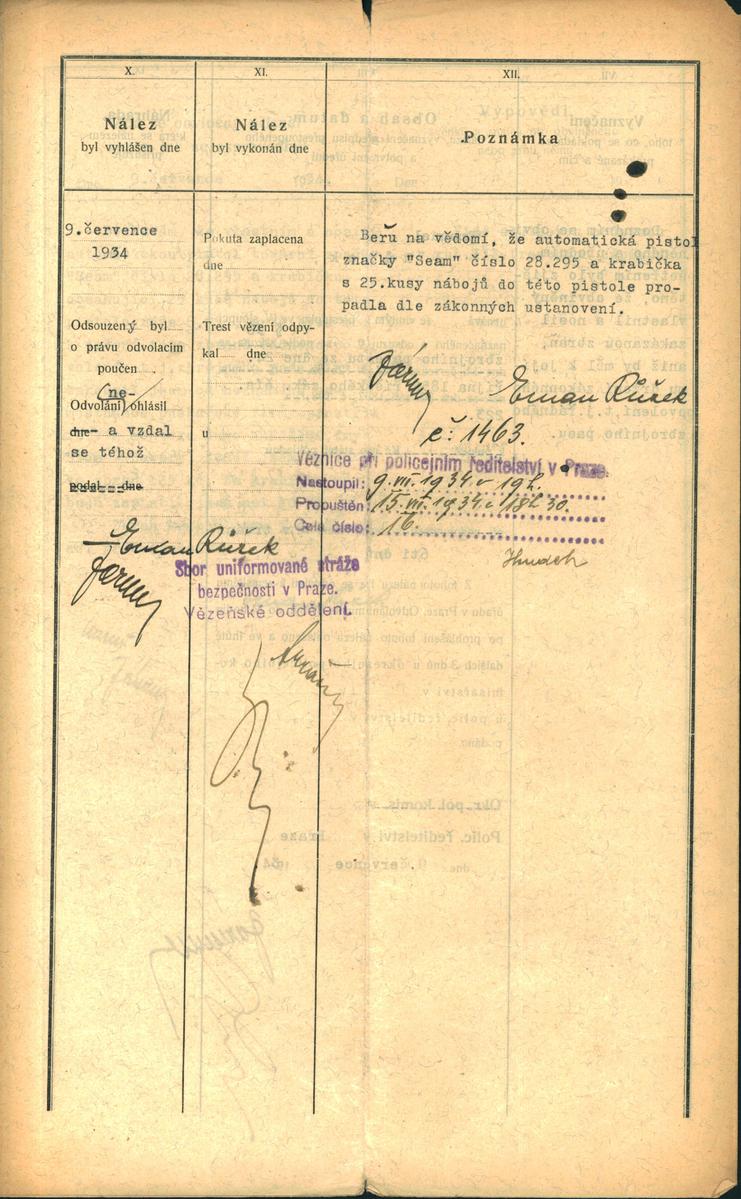 X.
Nález
byl vyhlášen dne
XI.
Nález
byl vykonán dne
XII.
Poznámka
9. července
1934
Odsouzený byl
o právu odvolacím
poučen
(ne-
Odvolání ohlásil
dne - a vzdal
se téhož
podal dne
Eman Růžek
Pokuta zaplacena
dne
Trest vězení odpy-
kal dne
u
Beru na vědomí, že automatická pistol
značky "Seam" číslo 28.295 a krabička
s 25.kusy nábojů do této pistole pro-
padla dle zákonných ustanovení.
Eman Růžek
č: 1463.
Věznice při policejním ředitelství v Praze.
Nastoupil: 9. VII. 1934 v 19 h.
Propuštěn: 15. VII. 1934 v 18 h 30.
Cela číslo: 16.
Sbor uniformované stráže
bezpečnosti v Praze.
Vězeňské oddělení.